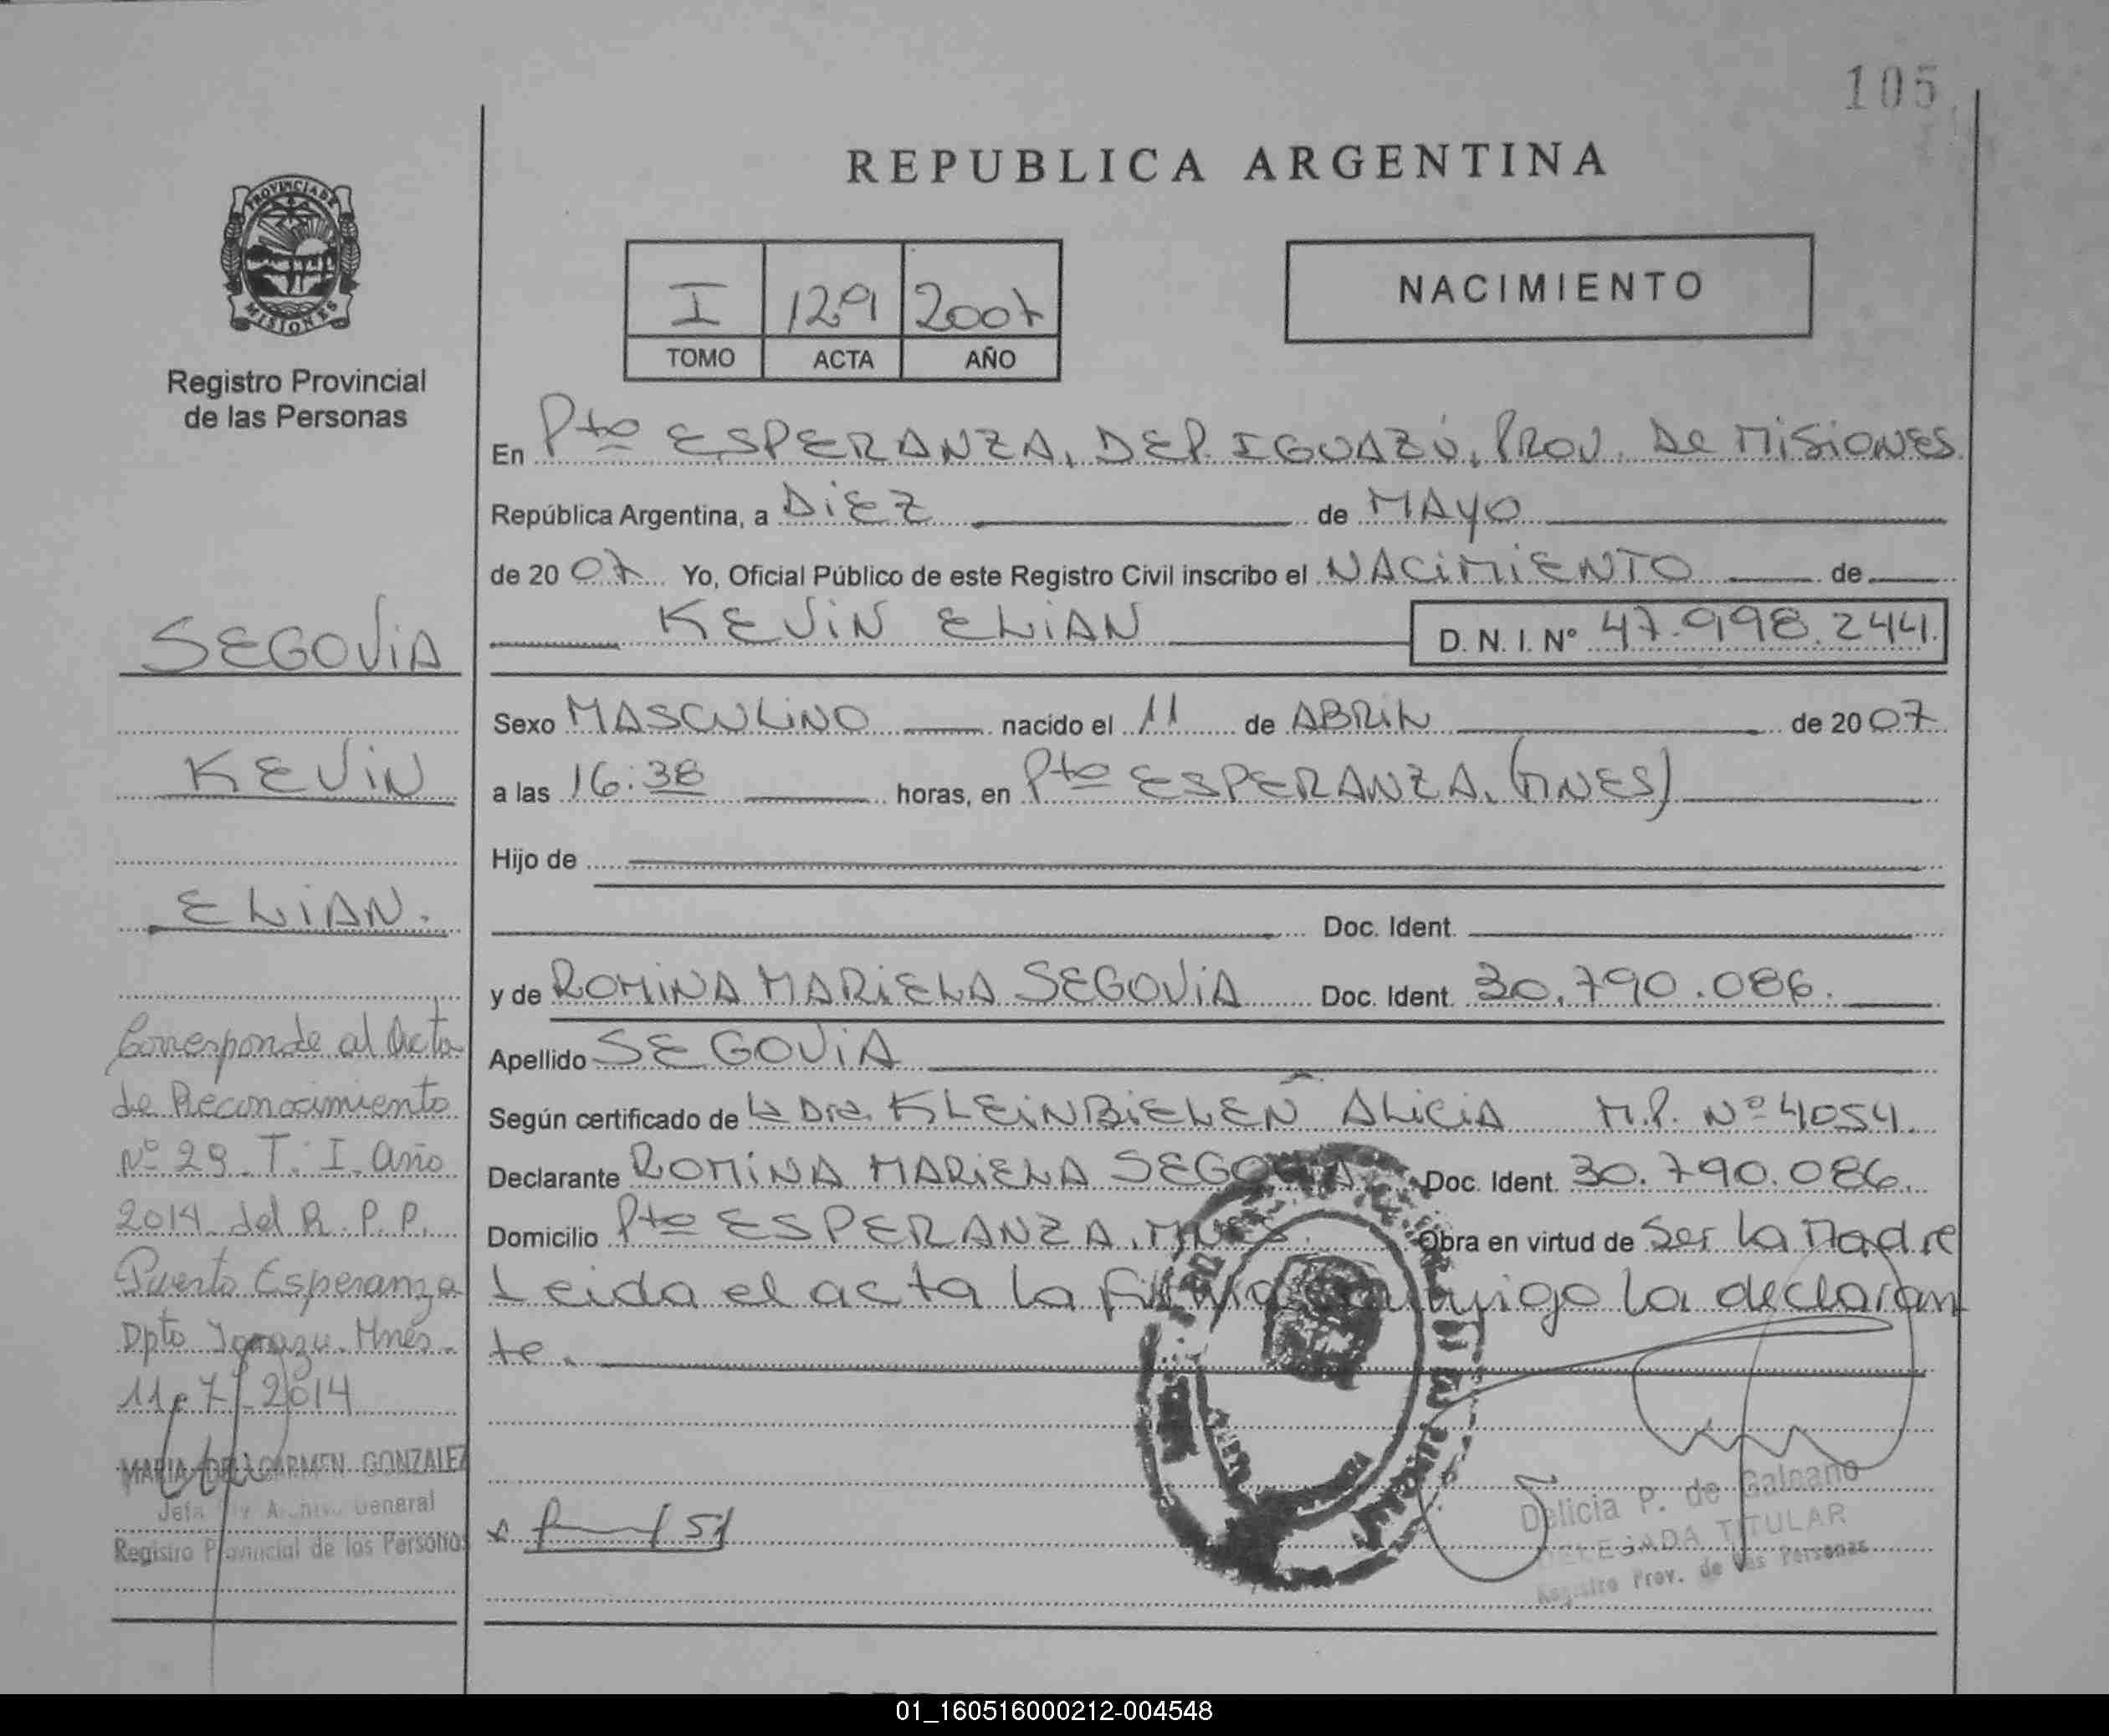 105
PROVINCIA DE
MISIONES
Registro Provincial
de las Personas
REPUBLICA ARGENTINA
I 129 2007
TOMO ACTA AÑO
NACIMIENTO
En Pto ESPERANZA, DEP. IGUAZÚ, PROV. De MISIONES
República Argentina, a DIEZ de MAYO
de 2007 Yo, Oficial Público de este Registro Civil inscribo el NACIMIENTO de
KEVIN ELIAN D. N. I. N° 47.998.244.
Sexo MASCULINO nacido el 11 de ABRIL de 2007
a las 16:38 horas, en Pto ESPERANZA, (MNES)
Hijo de
Doc. Ident.
y de ROMINA MARIELA SEGOVIA Doc. Ident. 30.790.086.
Apellido SEGOVIA
Según certificado de la Dra. KLEINBIELEN ALICIA M.P. Nº 4054
Declarante ROMINA MARIELA SEGOVIA Doc. Ident. 30.790.086.
Domicilio Pto ESPERANZA, MNES. Obra en virtud de Ser la Madre
Leida el acta la firma conmigo la declaran
te.
Delicia P. de Galeano
DELEGADA TITULAR
Registro Prov. de las Personas
SEGOVIA
KEVIN
ELIAN.
Corresponde al Acta
de Reconocimiento
Nº 29 T. I. Año
2014 del R. P. P.
Puerto Esperanza
Dpto Iguazu. Mnes.
11 7 2014
MARIA DEL CARMEN GONZALEZ
Jefa General
Registro Provincial de las Personas
01_160516000212-004548